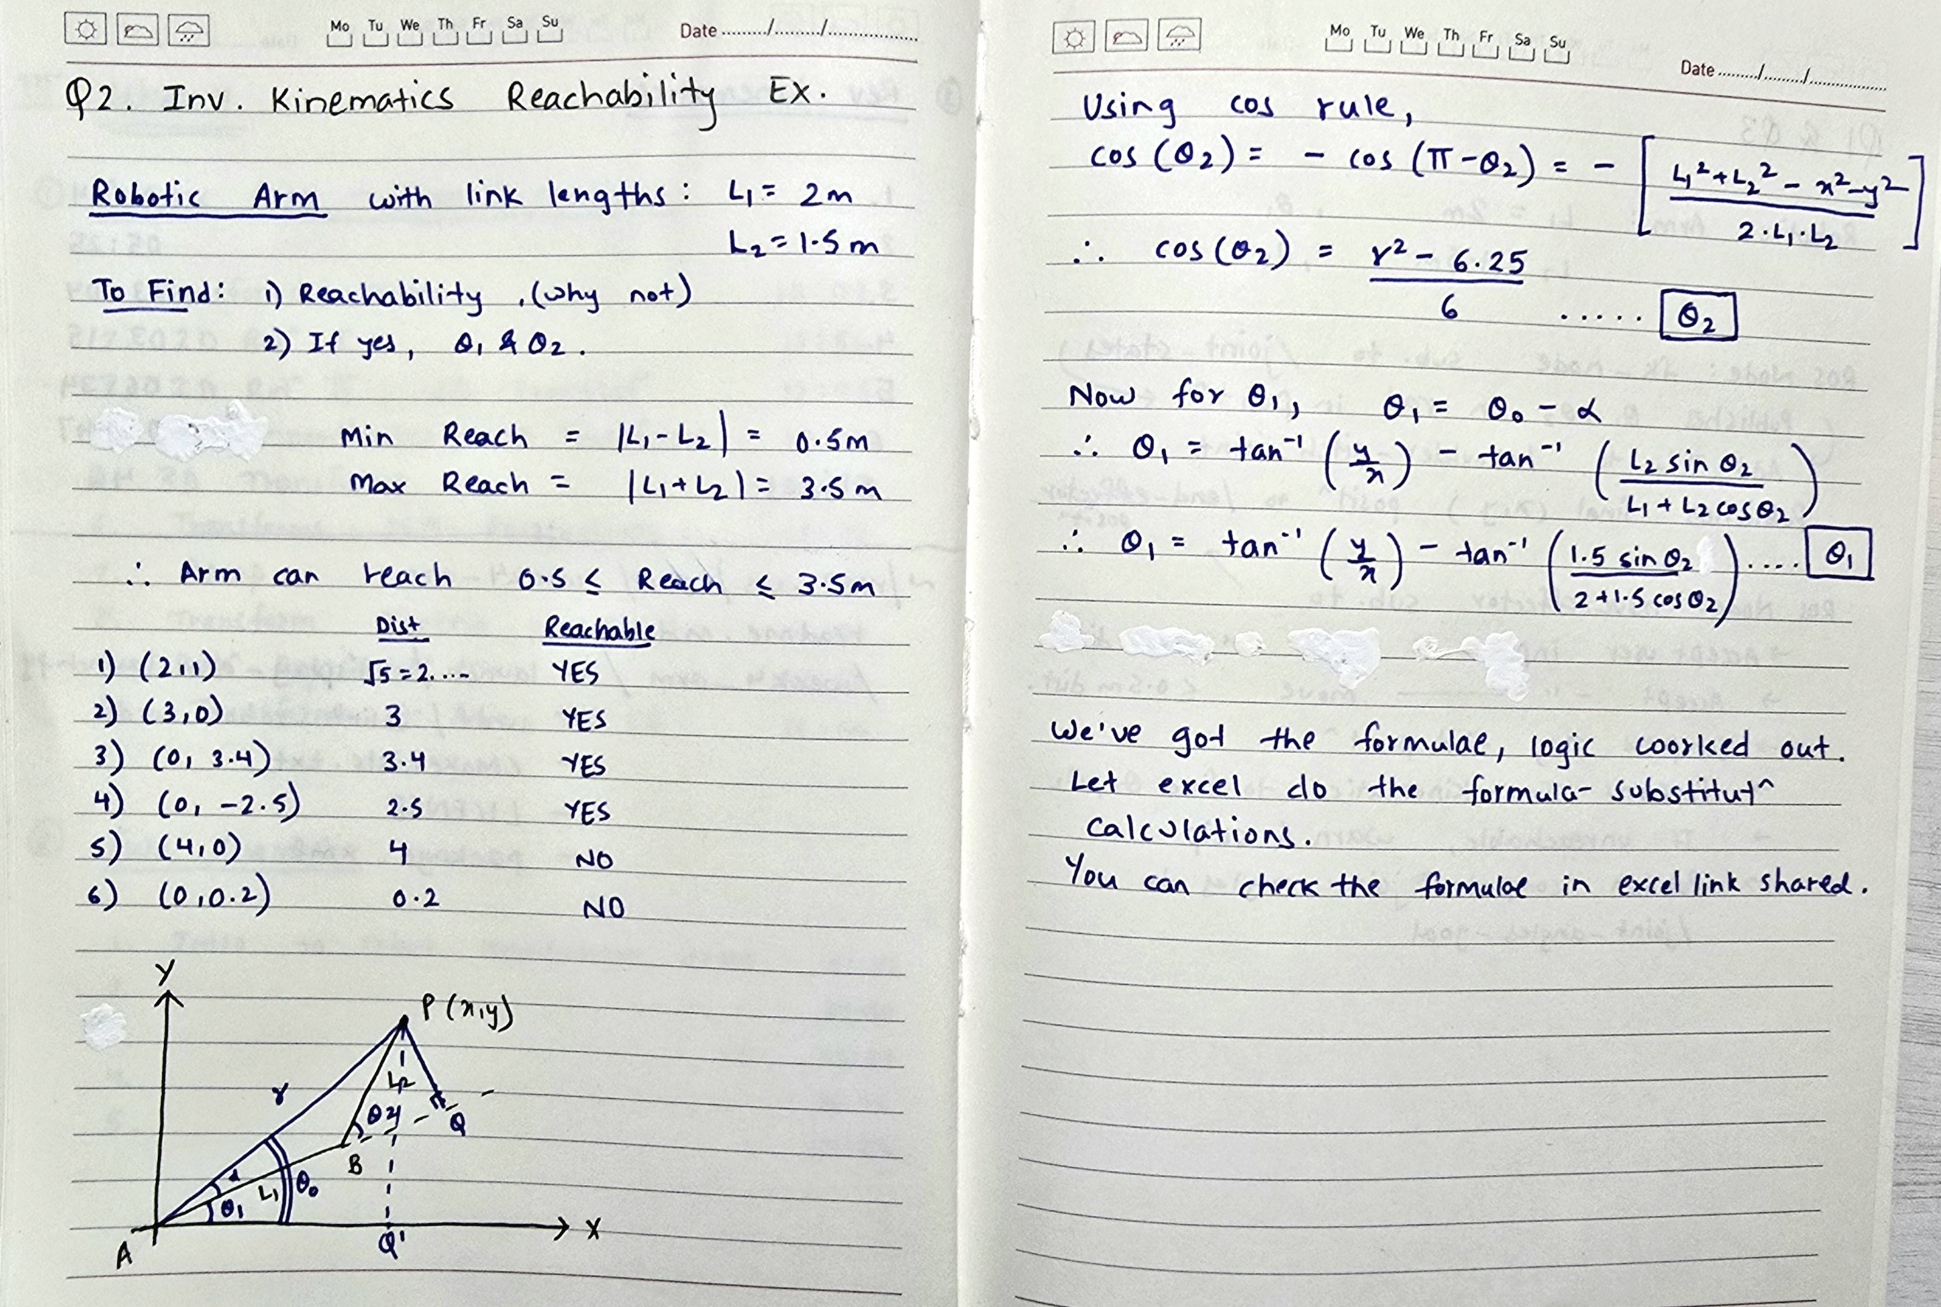 Mo Tu We Th Fr Sa Su Date ......../......../..............
Q2. Inv. Kinematics Reachability Ex.
Robotic Arm with link lengths : L₁ = 2m
L₂ = 1.5 m
To Find: 1) Reachability , (why not)
2) If yes, θ₁ & θ₂ .
Min Reach = |L₁ - L₂| = 0.5m
Max Reach = |L₁ + L₂| = 3.5 m
∴ Arm can reach 0.5 ≤ Reach ≤ 3.5m
Dist Reachable
1) (2,1) √5 = 2.... YES
2) (3,0) 3 YES
3) (0, 3.4) 3.4 YES
4) (0, -2.5) 2.5 YES
5) (4,0) 4 NO
6) (0,0.2) 0.2 NO
Y
P (x,y)
r
L₂
θ₂
Q
B
α
L₁
θ₀
θ₁
X
A
Q'
Mo Tu We Th Fr Sa Su
Date ......../......../..............
Using cos rule,
cos (θ₂) = - cos (π - θ₂) = - [ (L₁² + L₂² - x² - y²) / (2.L₁.L₂) ]
∴ cos (θ₂) = (r² - 6.25) / 6 ..... θ₂
Now for θ₁, θ₁ = θ₀ - α
∴ θ₁ = tan⁻¹ (y/x) - tan⁻¹ (L₂ sin θ₂ / L₁ + L₂ cos θ₂)
∴ θ₁ = tan⁻¹ (y/x) - tan⁻¹ (1.5 sin θ₂ / 2 + 1.5 cos θ₂) .... θ₁
We've got the formulae, logic coorked out.
Let excel do the formula- substitutⁿ
calculations.
You can check the formulae in excel link shared.